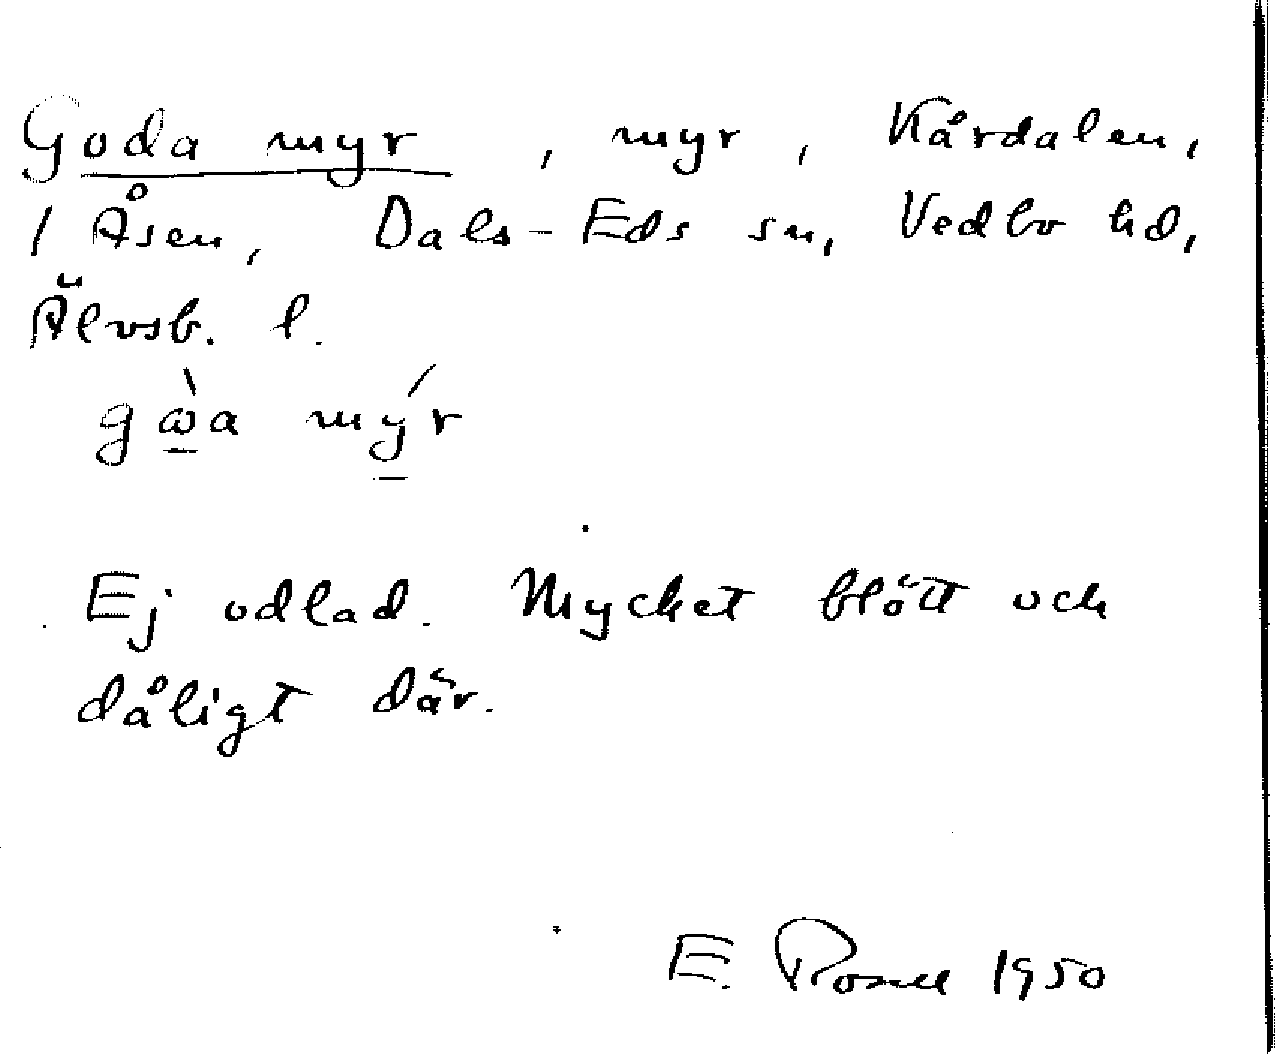 Goda myr, myr, Kårdalen,
/ Åsen, Dals-Eds sn, Vedbo hd,
Älvsb. l.
gὼa mýr
Ej odlad. Mycket blött och
dåligt där.
E. Rosell 1950